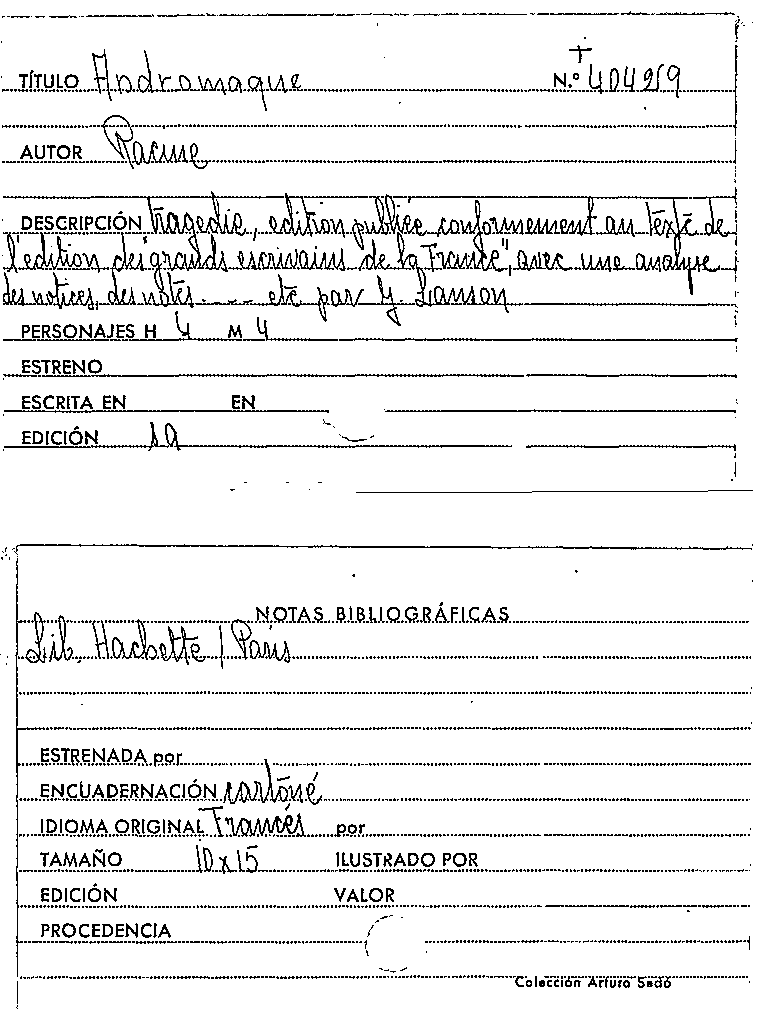 TÍTULO Andromaque N.º 404259
AUTOR Racine
DESCRIPCIÓN tragedie, edition publiée conformement au texte de
l'edition des "grands escrivains de la France", avec une analyse
des notices, des notes.... etc par G. Lanson
PERSONAJES H 4 M 4
ESTRENO
ESCRITA EN EN
EDICIÓN 1a
NOTAS BIBLIOGRÁFICAS
Lib. Hachette / Paris
ESTRENADA por
ENCUADERNACIÓN cartoné
IDIOMA ORIGINAL Francés por
TAMAÑO 10x15 ILUSTRADO POR
EDICIÓN VALOR
PROCEDENCIA
Colección Arturo Sedó